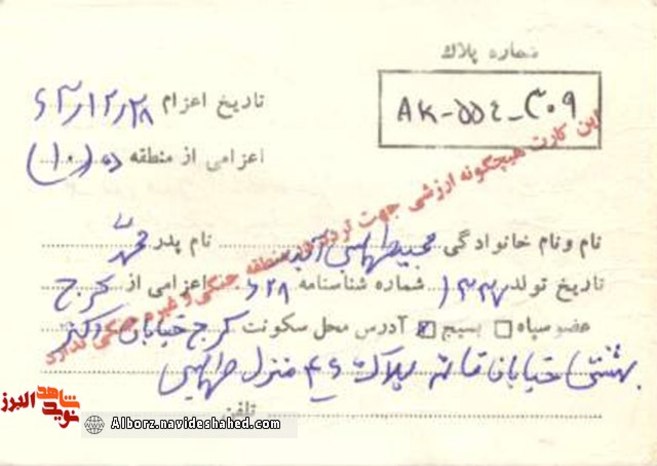 شماره پلاک
AK-۵۵٤-۳۰۹
تاریخ اعزام ۶۳ر۱۲ر۲۸
اعزامی از منطقه ده (۱۰)
این کارت هیچگونه ارزشی جهت تردد در منطقه جنگی و غیره جنگی ندارد
نام و نام خانوادگی طهماسبی نام پدر محمد
تاریخ تولد ۱۳۳۷ شماره شناسنامه ۶۲۸ اعزامی از کرج
عضو سپاه □ بسیج آدرس محل سکونت کرج خیابان دکتر
بهشتی خیابان پلاک ۴۶ منزل طهماسبی
تلفن
شاهد نوید البرز
Alborz.navideshahed.com